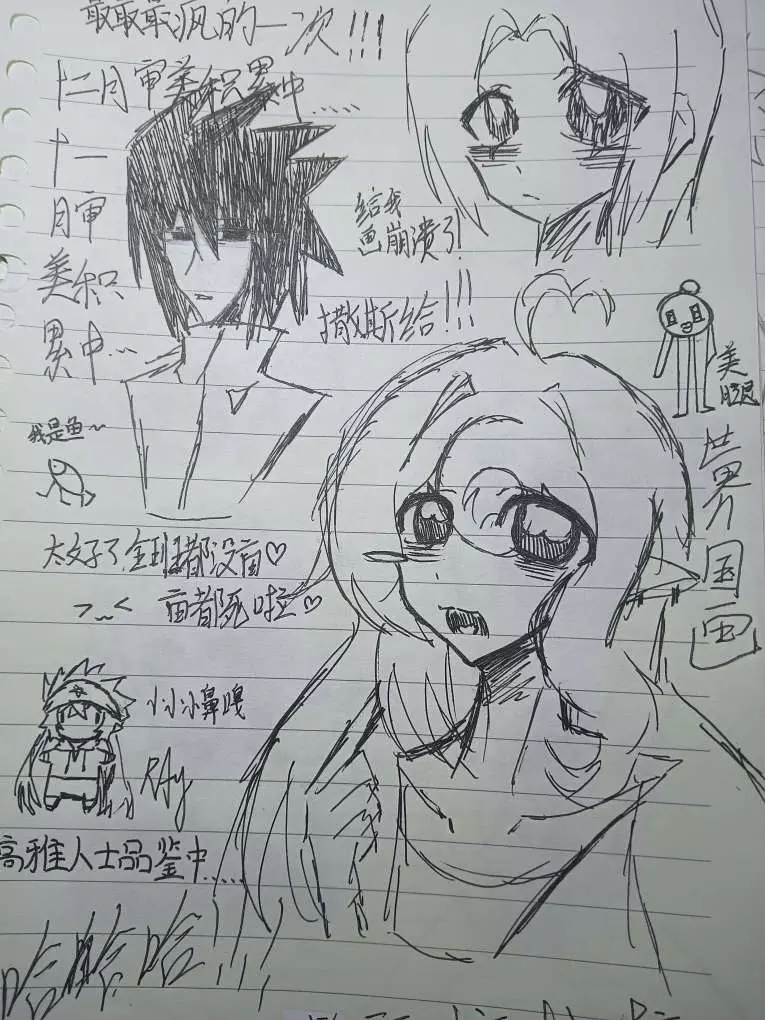 最最最疯的一次!!!
十二月审美积累中……
十一
月审
美积
累中…
给我
画崩溃了!
撒斯给!!!
美
腿
我是鱼~
太好了,全班都没亩♡
亩都死啦♡
小小小鼻嘎
高雅人士品鉴中……
国画
哈哈哈!!!